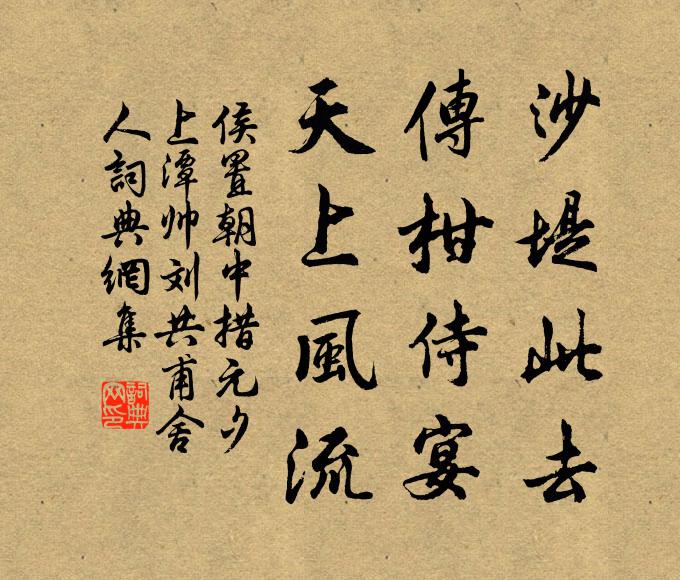 沙堤此去
傳柑侍宴
天上風流
侯置朝中措元夕
上潭帅刘共甫舍
人詞典網集
詞典网印